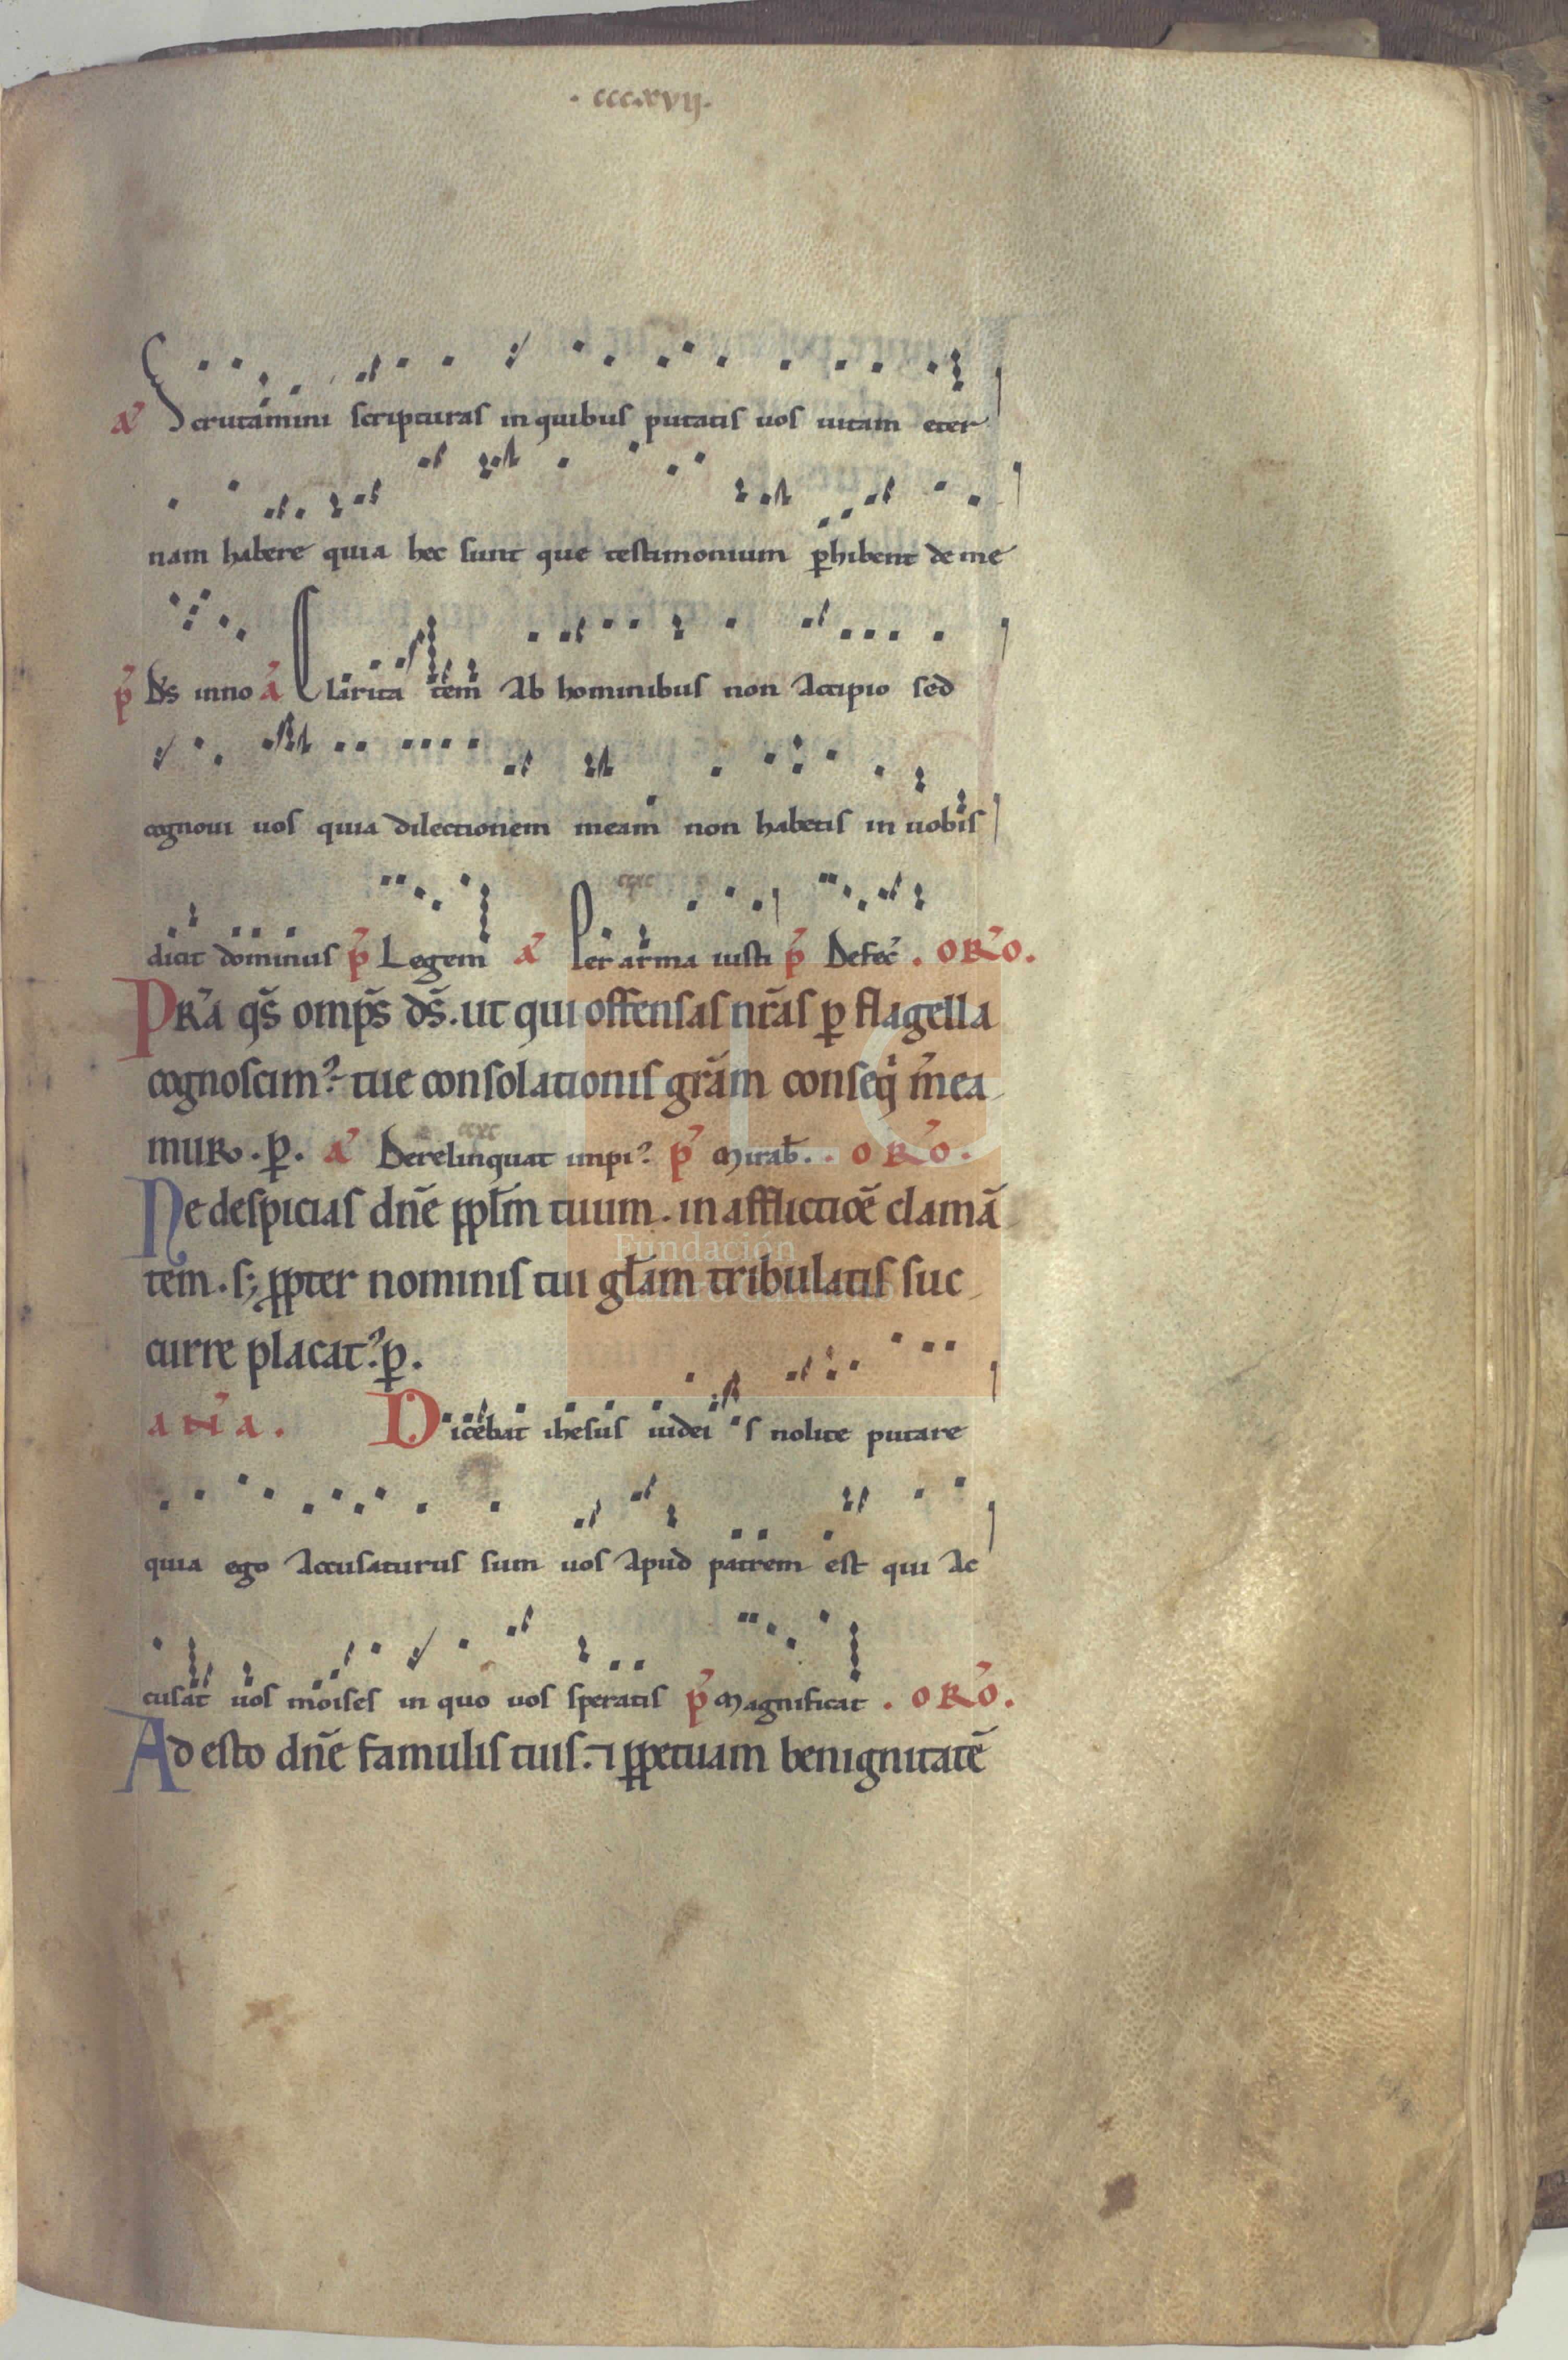 · cccxvıȷ·
a᷎ Scrutamini scripturas in quibus putatis uos uitam eter
nam habere quia hec sunt que testimonium ꝑhibent de me
p᷎ Ds̄ inno a᷎ Claritatem ab hominibus non accipio sed
cognoui uos quia dilectionem meam non habetis in uobis
ccxc
dicit dominus p᷎ Legem a᷎ Per arma iusti p᷎ Defec᷎ . ORO᷎.
PRa᷎ qs̄ omps̄ ds̄. ut qui offensas nr̄as ꝑ flagella
cognoscim᷎. tue consolationis grām conseqͥ m᷎ea
mur . ꝑ. a᷎ Derelinquat impi᷎ p᷎ Mirab̄ . . ORO᷎ .
ccxc
Ne despicias dn̄e ꝑpl̄m tuum . in afflictiōe clamā
tem . s; ꝓpter nominis tui gl̄am tribulatis suc
curre placat᷎. ꝑ .
Fundación
aN᷎a . Dicebat ihesus iudeis nolite putare
quia ego accusaturus sum uos apud patrem est qui ac
cusat uos moises in quo uos speratis p᷎ Magnificat . ORO᷎ .
Adesto dn̄e famulis tuis . ⁊ ꝑpetuam benignitatē